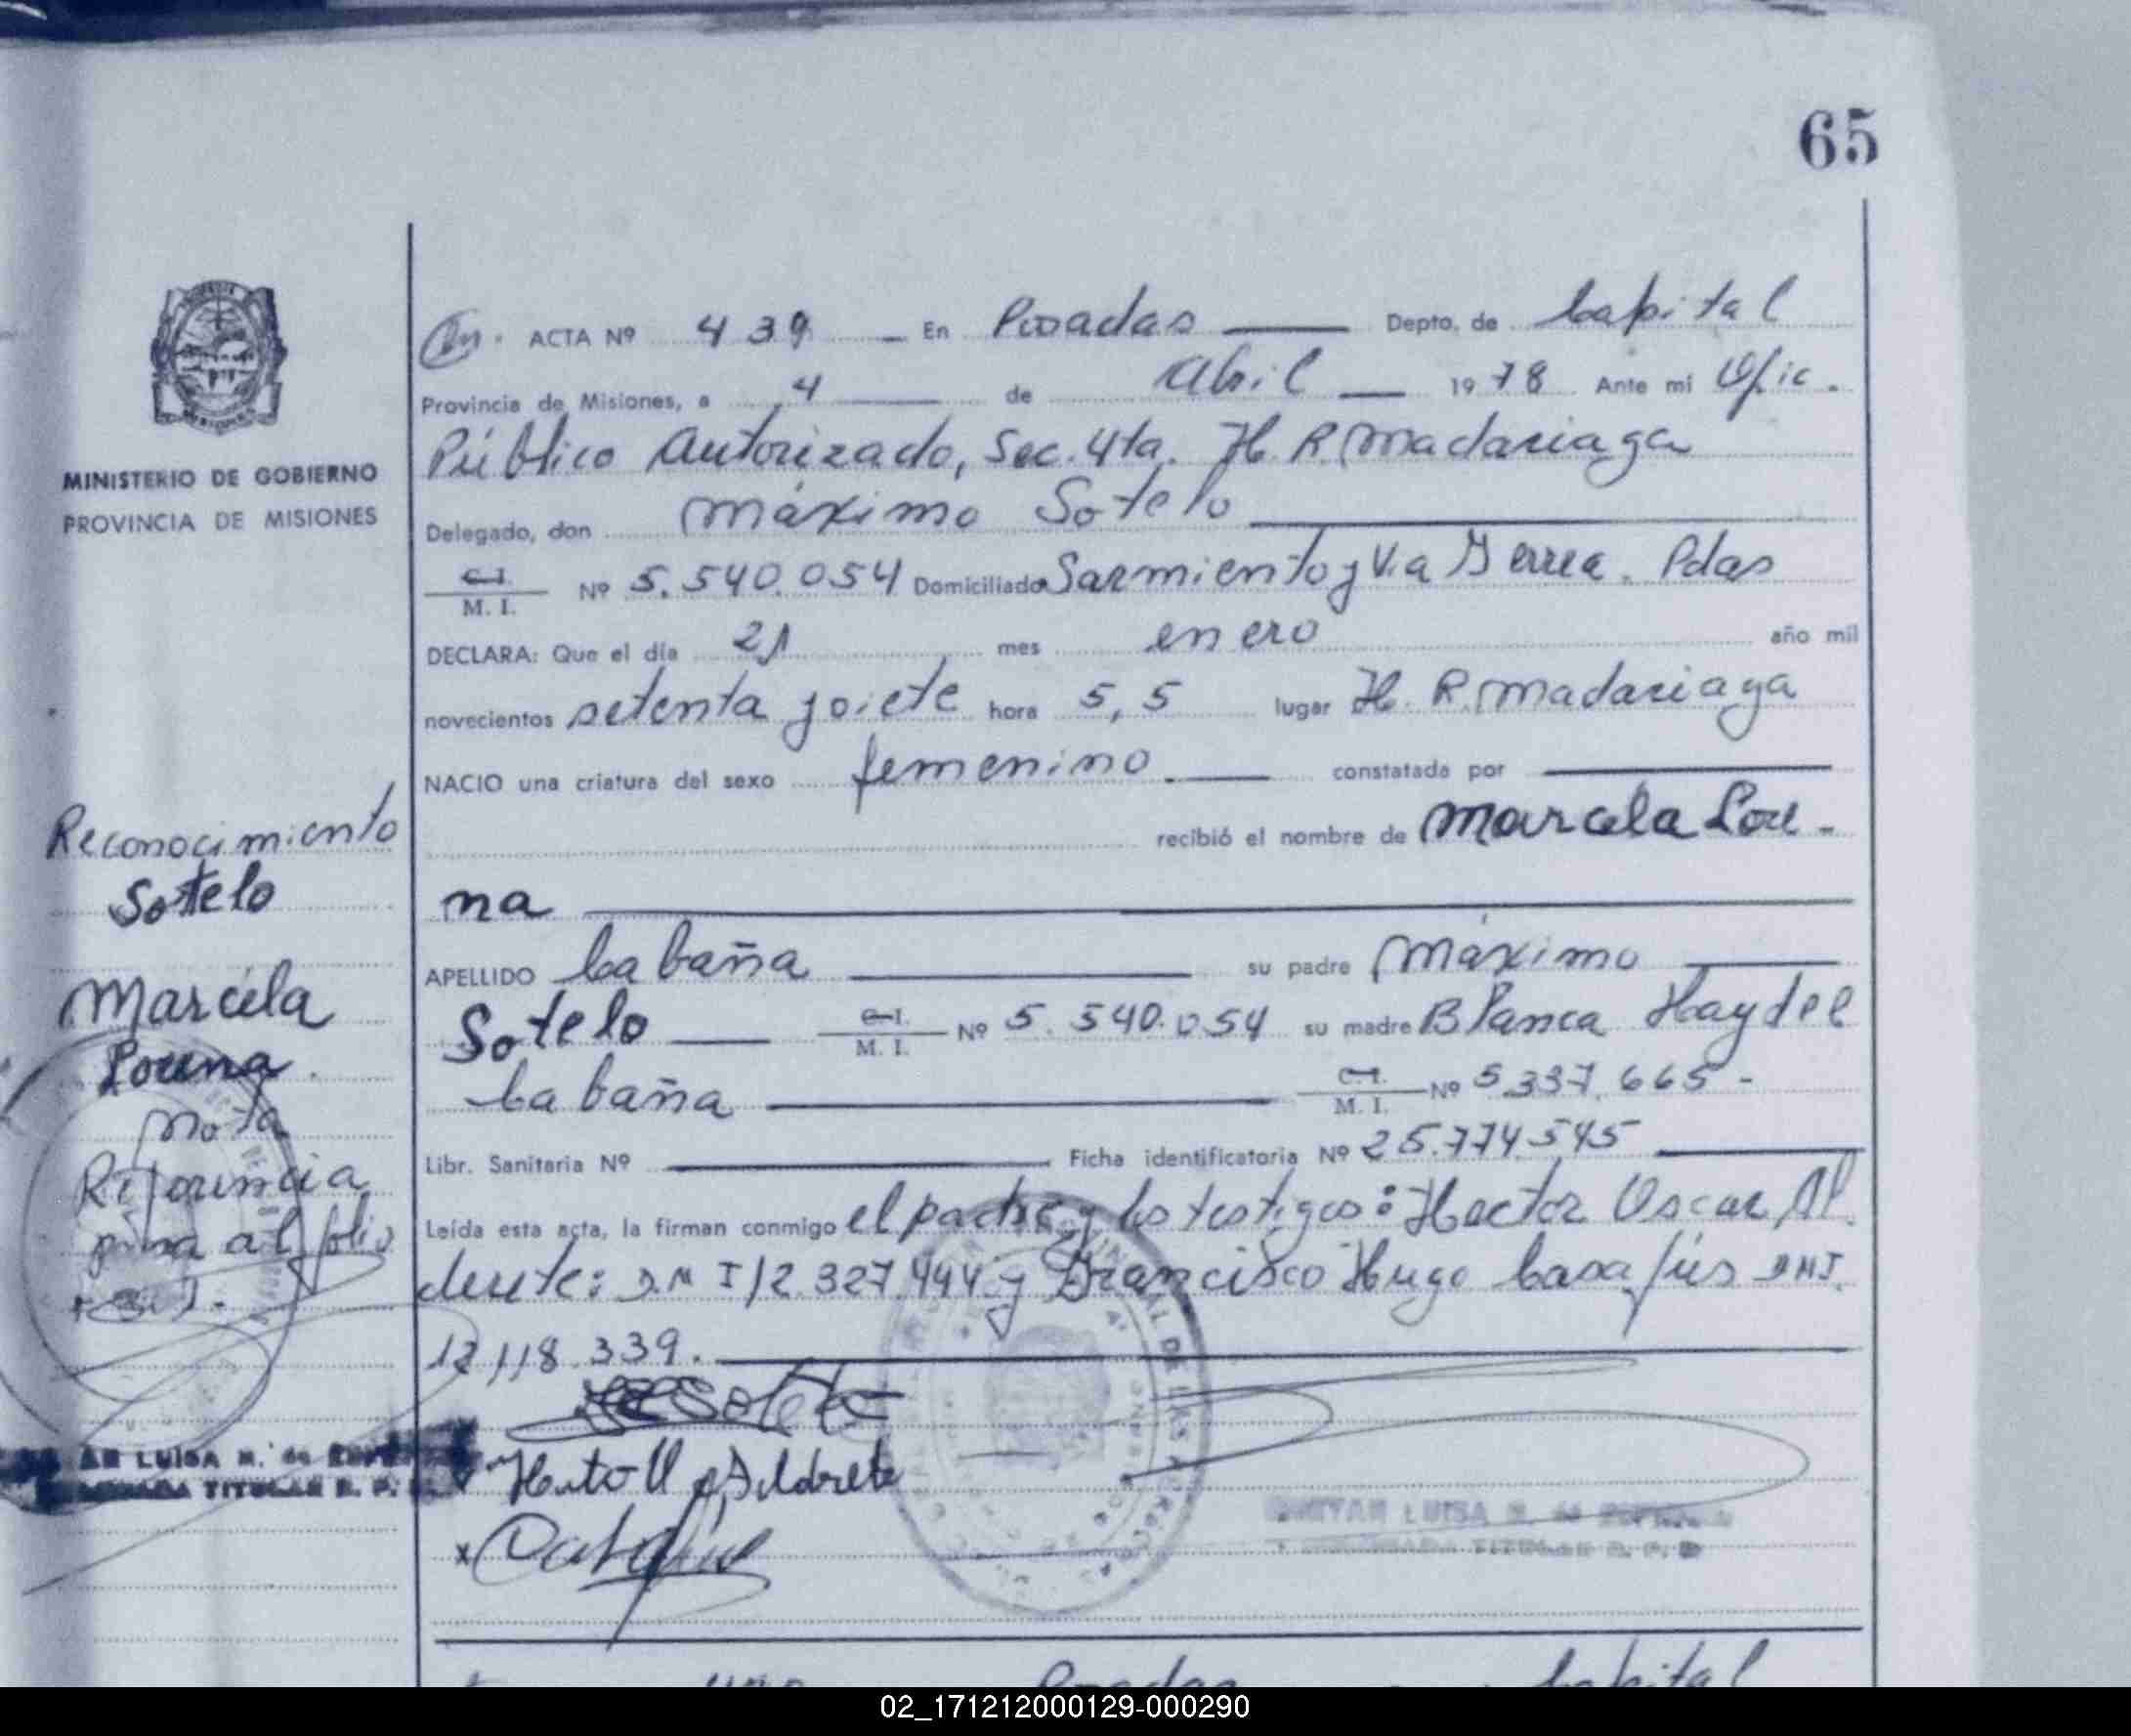 65
ACTA Nº 439 En Posadas Depto. de Capital
Provincia de Misiones, a 4 de Abril 1978 Ante mi Ofic.
Público Autorizado, Sec. 4ta. H. R. Madariaga
Delegado, don Máximo Sotelo
C.I. M. I. Nº 5.540.054 Domiciliado Sarmiento y Via Ferrea. Pdas
DECLARA: Que el día 21 mes enero año mil
novecientos setenta y siete hora 5,5 lugar H. R. Madariaga
NACIO una criatura del sexo femenino. constatada por
recibió el nombre de Marcela Lore-
na
APELLIDO Cabaña su padre Máximo
Sotelo C.I. M. I. Nº 5.540.054 su madre Blanca Haydee
Cabaña C.I. M. I. Nº 5.337.665-
Libr. Sanitaria Nº Ficha identificatoria Nº 25.774.545
Leída esta acta, la firman conmigo el padre y los testigos: Hector Oscar Al
derete: D.N.I 12.327.444 y Francisco Hugo Casafús DNI.
12.118.339.
MINISTERIO DE GOBIERNO
PROVINCIA DE MISIONES
Reconocimiento
Sotelo
Marcela
Lorena.
Nota
Referencia
al folio
LUISA
TITULAR R. P.
LUISA
TITULAR R. P.
Posadas Capital
02_171212000129-000290